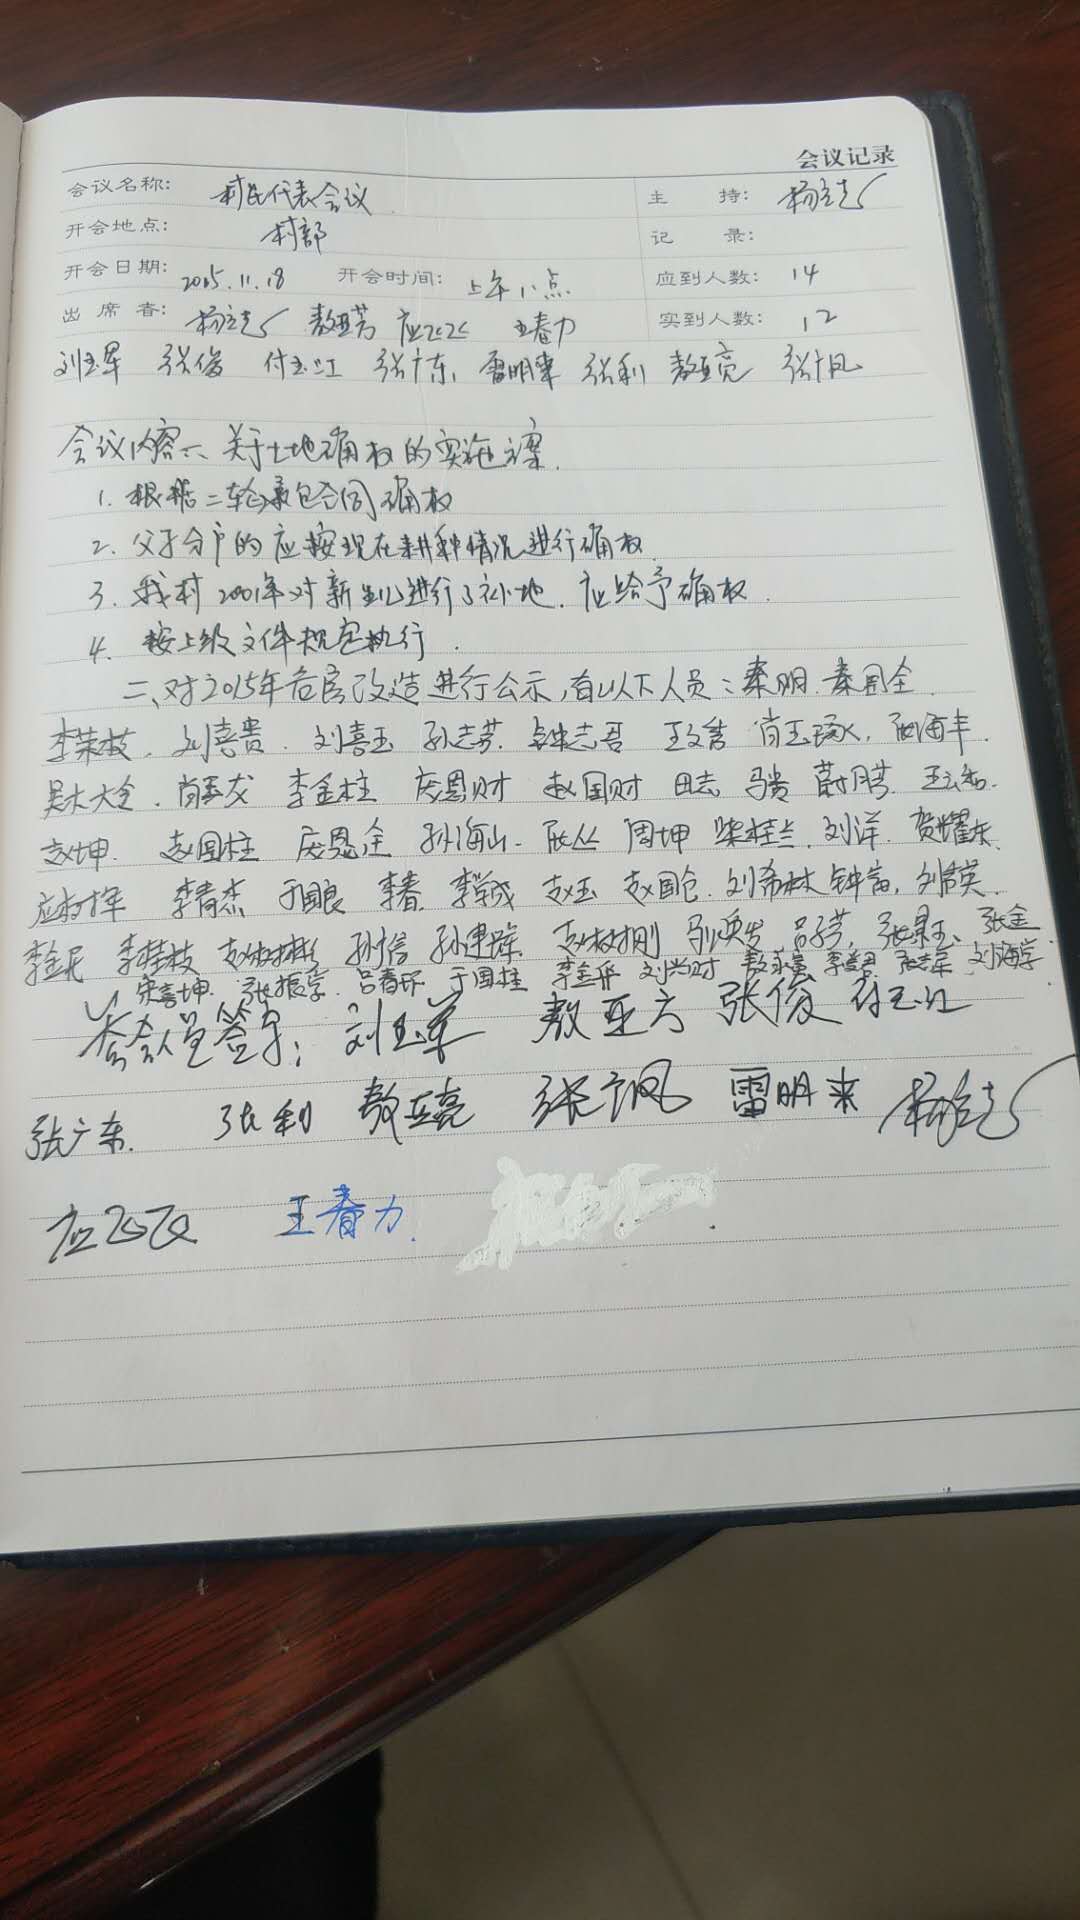 会议记录
会议名称: 村民代表会议 主 持: 杨立志
开会地点: 村部 记 录:
开会日期: 2015.11.18 开会时间: 上午 点 应到人数: 14
出 席 者: 杨立志 敖亚芳 王春力 实到人数: 12
刘玉军 张俊 付玉江 张广东 雷明来 张利 敖亚亮 张广凤
会议内容 一、关于土地确权的实施方案.
1. 根据二轮承包合同确权
2. 父子分户的应按现在耕种情况进行确权.
3. 我村2001年对新生儿进行了补地.应给予确权.
4. 按上级文件规定执行.
二、对2015年危房改造进行公示,有以下人员: 秦明. 秦国全.
李荣枝. 刘喜贵. 刘喜玉 孙志芳. 钟志吾 王文 肖玉 海丰.
大全. 李金柱 庞恩财 赵国财 田志 马贵 王云
赵坤. 赵国柱 庞恩全 孙海山. 周坤 梁桂兰. 刘洋. 贺耀东.
李青杰 于国良 李春. 李成 赵玉 赵国仓. 刘希林 钟富. 刘英.
李金民 李桂枝 赵树彬 孙信 孙建辉 赵树刚 张景玉. 张金
宋喜坤. 张振学. 吕春环 于国柱 李金 刘兴财 敖永富 李 刘海学
参会人员签字: 刘玉军 敖亚方 张俊 付玉江
张广东. 张利 敖亚亮 张广凤 雷明来 杨立志
王春力.